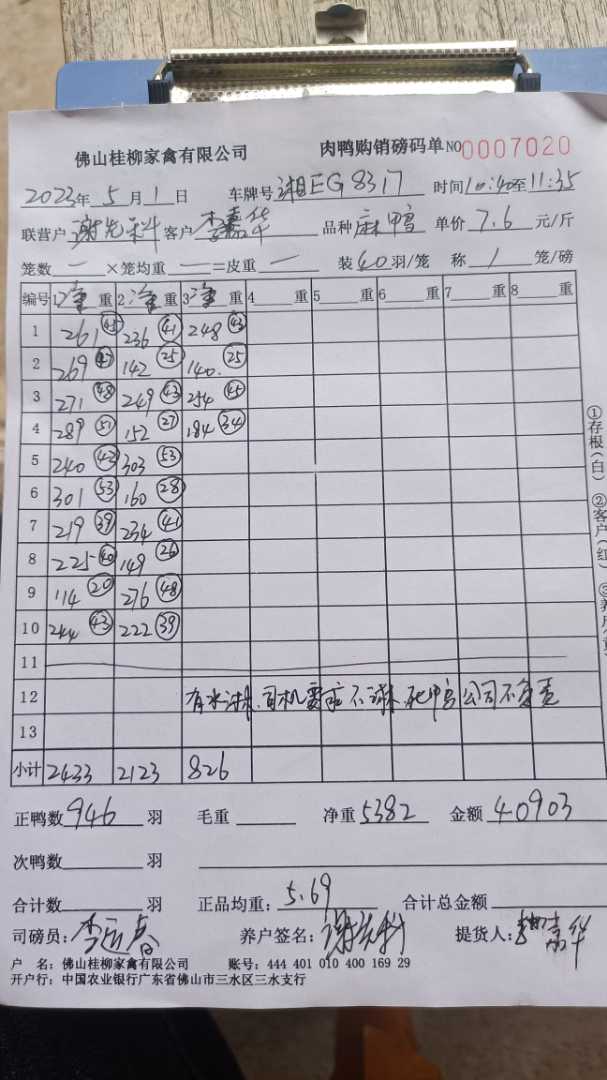 佛山桂柳家禽有限公司 肉鸭购销磅码单 NO 0007020
2023年 5 月 1 日 车牌号 湘EG8317 时间 10:40至11:35
联营户 谢先科 客户 李嘉华 品种 麻鸭 单价 7.6 元/斤
笼数 一 ×笼均重 一 =皮重 一 装 40 羽/笼 称 1 笼/磅
编号 1 净 重 2 净 重 3 净 重 4 重 5 重 6 重 7 重 8 重
1 261 45 236 41 248 43
2 269 47 142 25 140. 25
3 271 48 249 43 254 45
4 289 51 152 27 184 34
5 240 43 303 53
6 301 53 160 28
7 219 39 234 41
8 225 40 149 26
9 114 20 276 48
10 244 43 222 39
11
12 有水淋.司机要求不淋.死鸭公司不负责
13
小计 2433 2123 826
正鸭数 946 羽 毛重 净重 5382 金额 40903
次鸭数 羽
合计数 羽 正品均重: 5.69 合计总金额
司磅员: 养户签名: 谢先科 提货人:
户 名: 佛山桂柳家禽有限公司 账号: 444 401 010 400 169 29
开户行: 中国农业银行广东省佛山市三水区三水支行
①存根(白) ②客户(红)